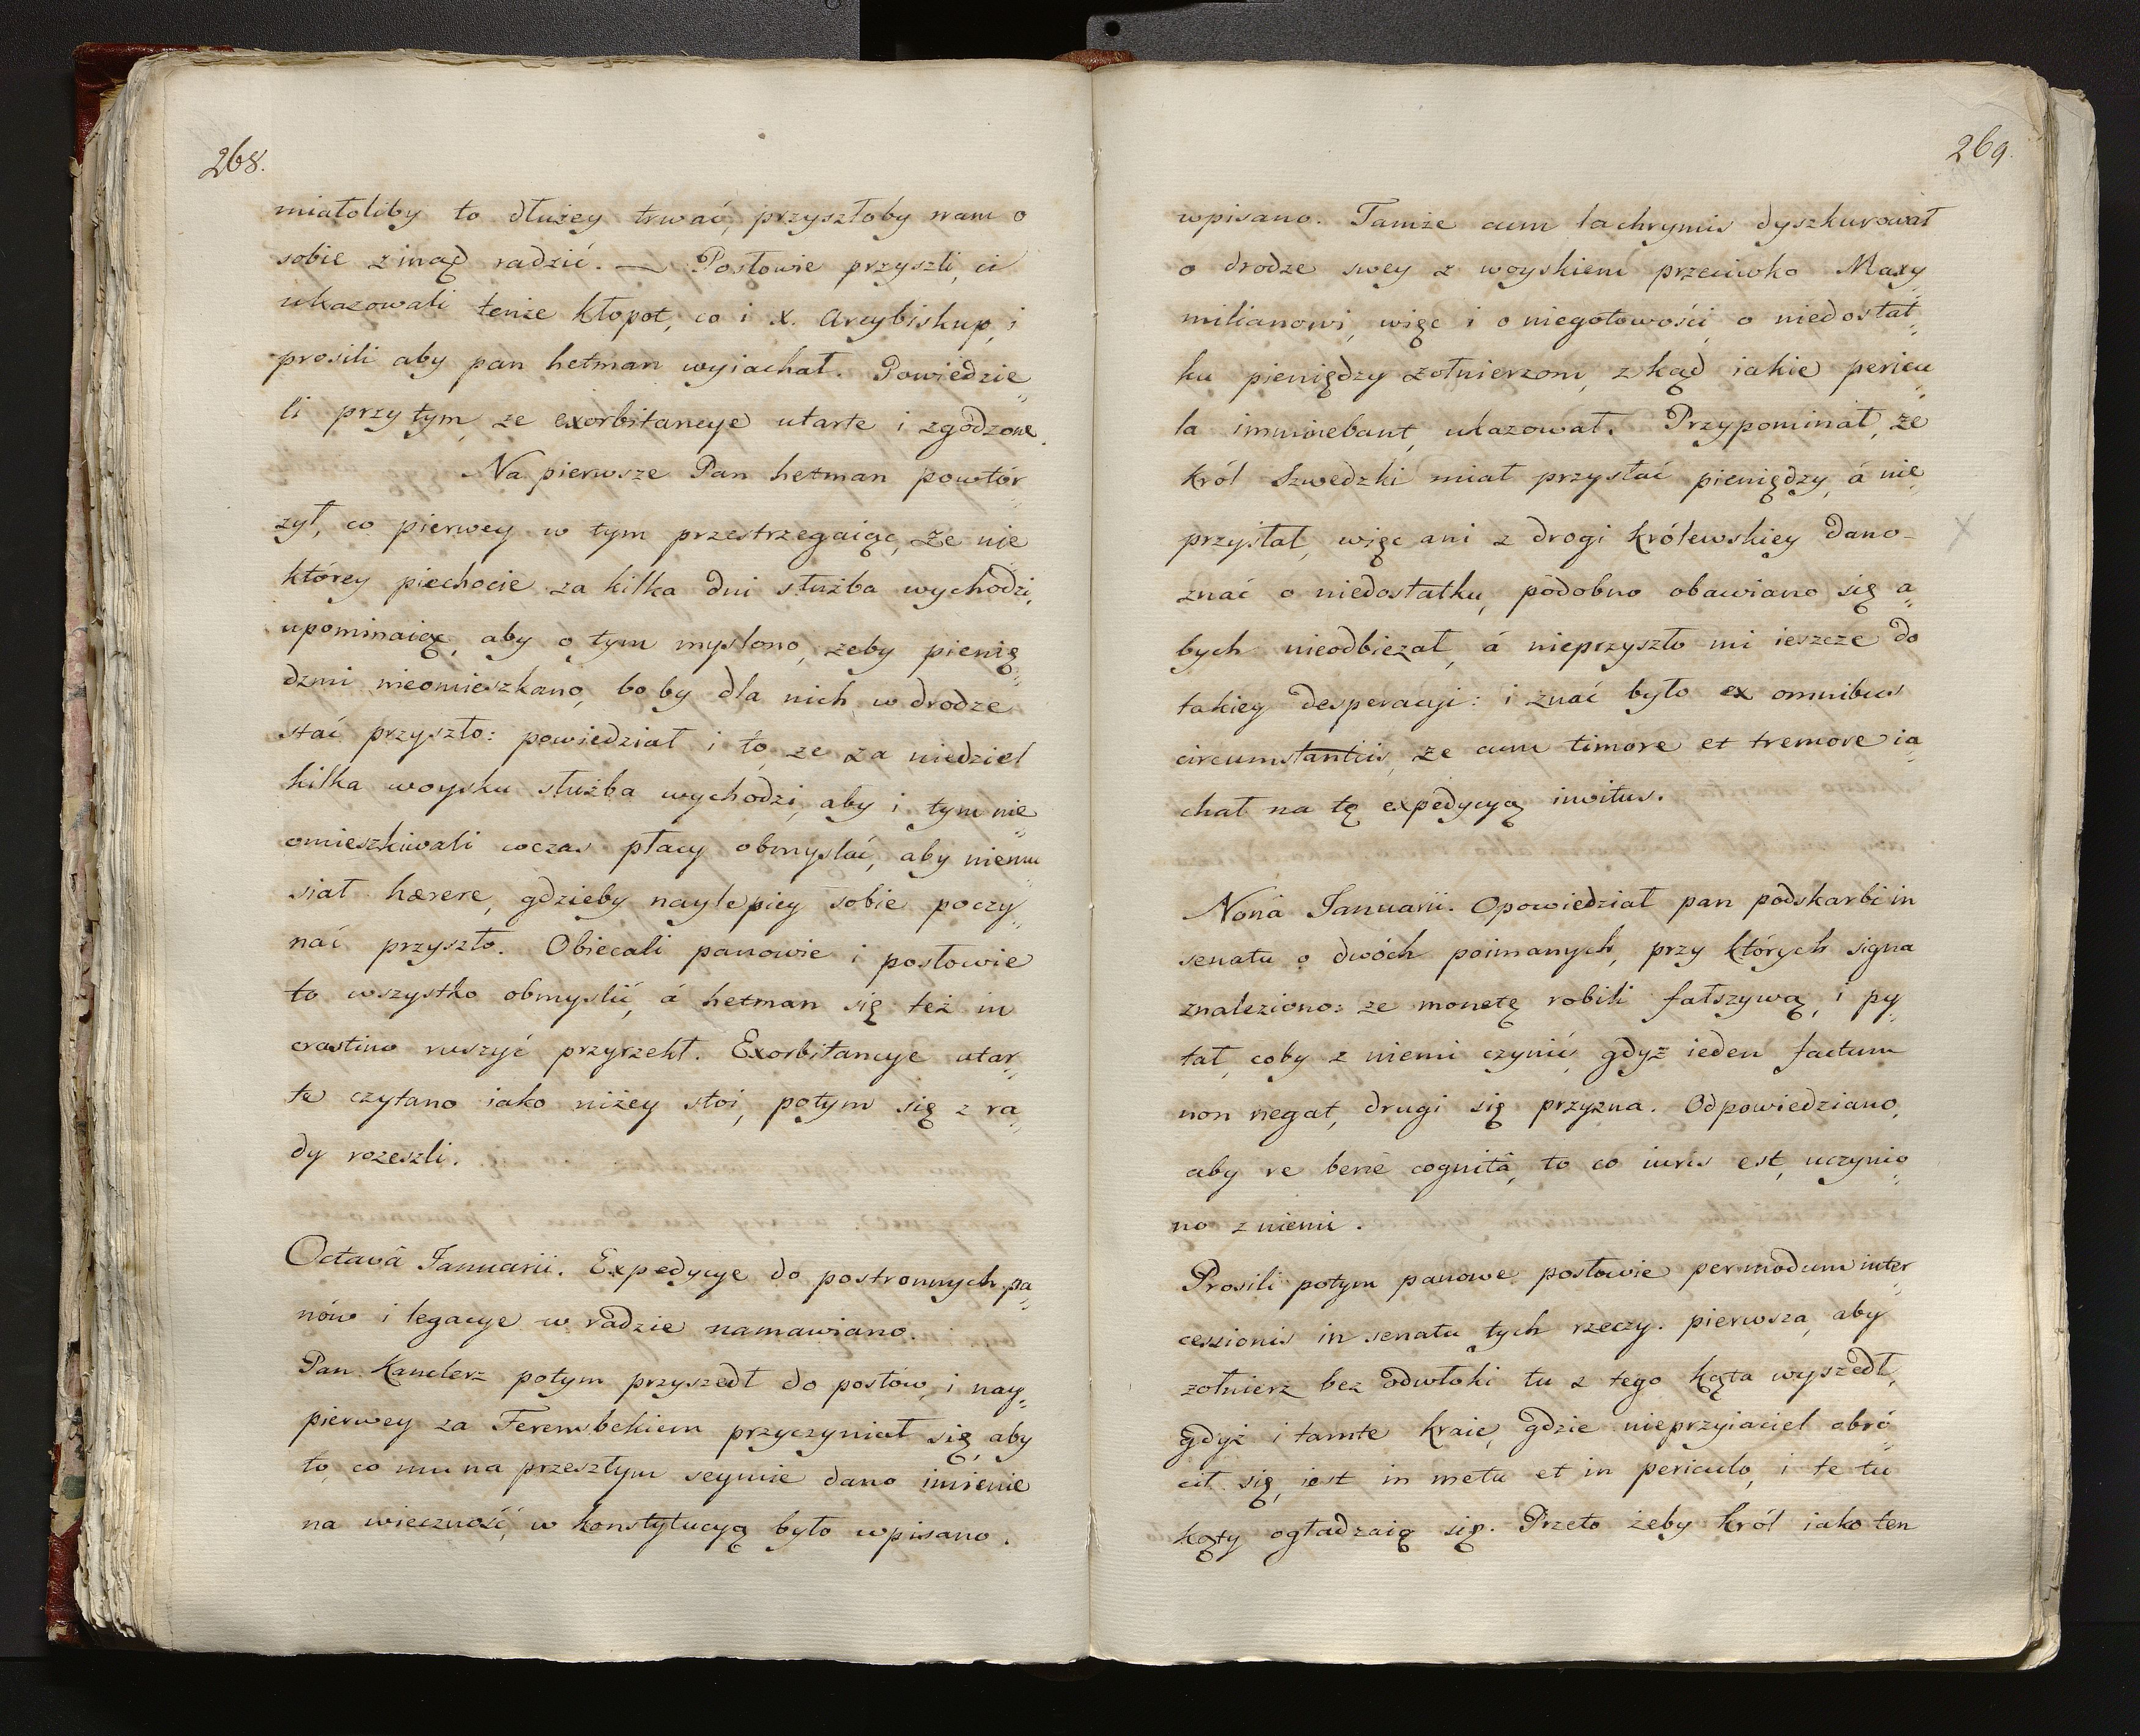 268.
miałoliby to dłużey trwać, przyszłoby nam o
sobie z inąd radzić. — Posłowie przyszli, ci
ukazowali tenże kłopot, co i X. Arcybiskup, i
prosili aby pan hetman wyiachał. Powiedzie„
li przy tym, ze exorbitancye utarte i zgodzone.
Na pierwsze Pan hetman powtór„
zył, co pierwey w tym przestrzegaiąc, ze nie
którey piechocie za kilka dni służba wychodzi,
upominaiąc, aby o tym myslono, zeby pienię„
dzmi nieomieszkano, bo by dla nich w drodze
stać przyszło: powiedział i to, ze za niedziel
kilka woysku służba wychodzi, aby i tym nie„
omieszkiwali wczas płacy obmyslać, aby niemu„
siał hærere, gdzieby naylepiey sobie poczy„
nać przyszło. Obiecali panowie i posłowie
to wszystko obmyslić, á hetman się też in
crastino ruszyć przyrzekł. Exorbitancye utar„
te czytano iako niżey stoi, potym się z ra„
dy rozeszli.
Octavâ Ianuarii. Expedycye do postronnych pa„
nów i legacye w radzie namawiano.
Pan Kanclerz potym przyszedł do posłów, i nay„
pierwey za Ferensbekiem przyczyniał się, aby
to, co mu na przeszłym seymie dano imienie
na wieczność, w konstytucyą było wpisano.
269.
wpisano. Tamże cum lachrymis dyszkurował
o drodze swey z woyskiem przeciwko Maxy„
milianowi, więc i o niegotowości, o niedostat„
ku pieniędzy zołnierzom, z kąd iakie pericu„
la imminebant, ukazował. Przypominał, ze
król Szwedzki miał przysłać pieniędzy, á nie
przysłał, więc ani z drogi królewskiey dano
znać o niedostatku, podobno obawiano się a„
bych nieodbiezał, á nieprzyszło mi ieszcze do
takiey desperacyi: i znać było ex omnibus
circumstantiis, ze cum timore et tremore ia„
chał na tę expedycyą invitus.
Nonâ Ianuarii. Opowiedział pan podskarbi in
senatu o dwóch poimanych, przy których signa
znaleziono: ze monetę robili fałszywą, i py„
tał, coby z niemi czynić, gdyż ieden factum
non negat, drugi się przyzna. Odpowiedziano,
aby re benè cognitâ, to co iuris est, uczynio„
no z niemi.
Prosili potym panowe posłowie per modum inter„
cessionis in senatu tych rzeczy. pierwsza, aby
zołnierz bez odwłoki tu z tego kąta wyszedł,
gdyż i tamte kraie, gdzie nieprzyiaciel obró„
cił się, iest in metu et in periculo, i te tu
kąty ogładzaią się. Przeto żeby król iako ten